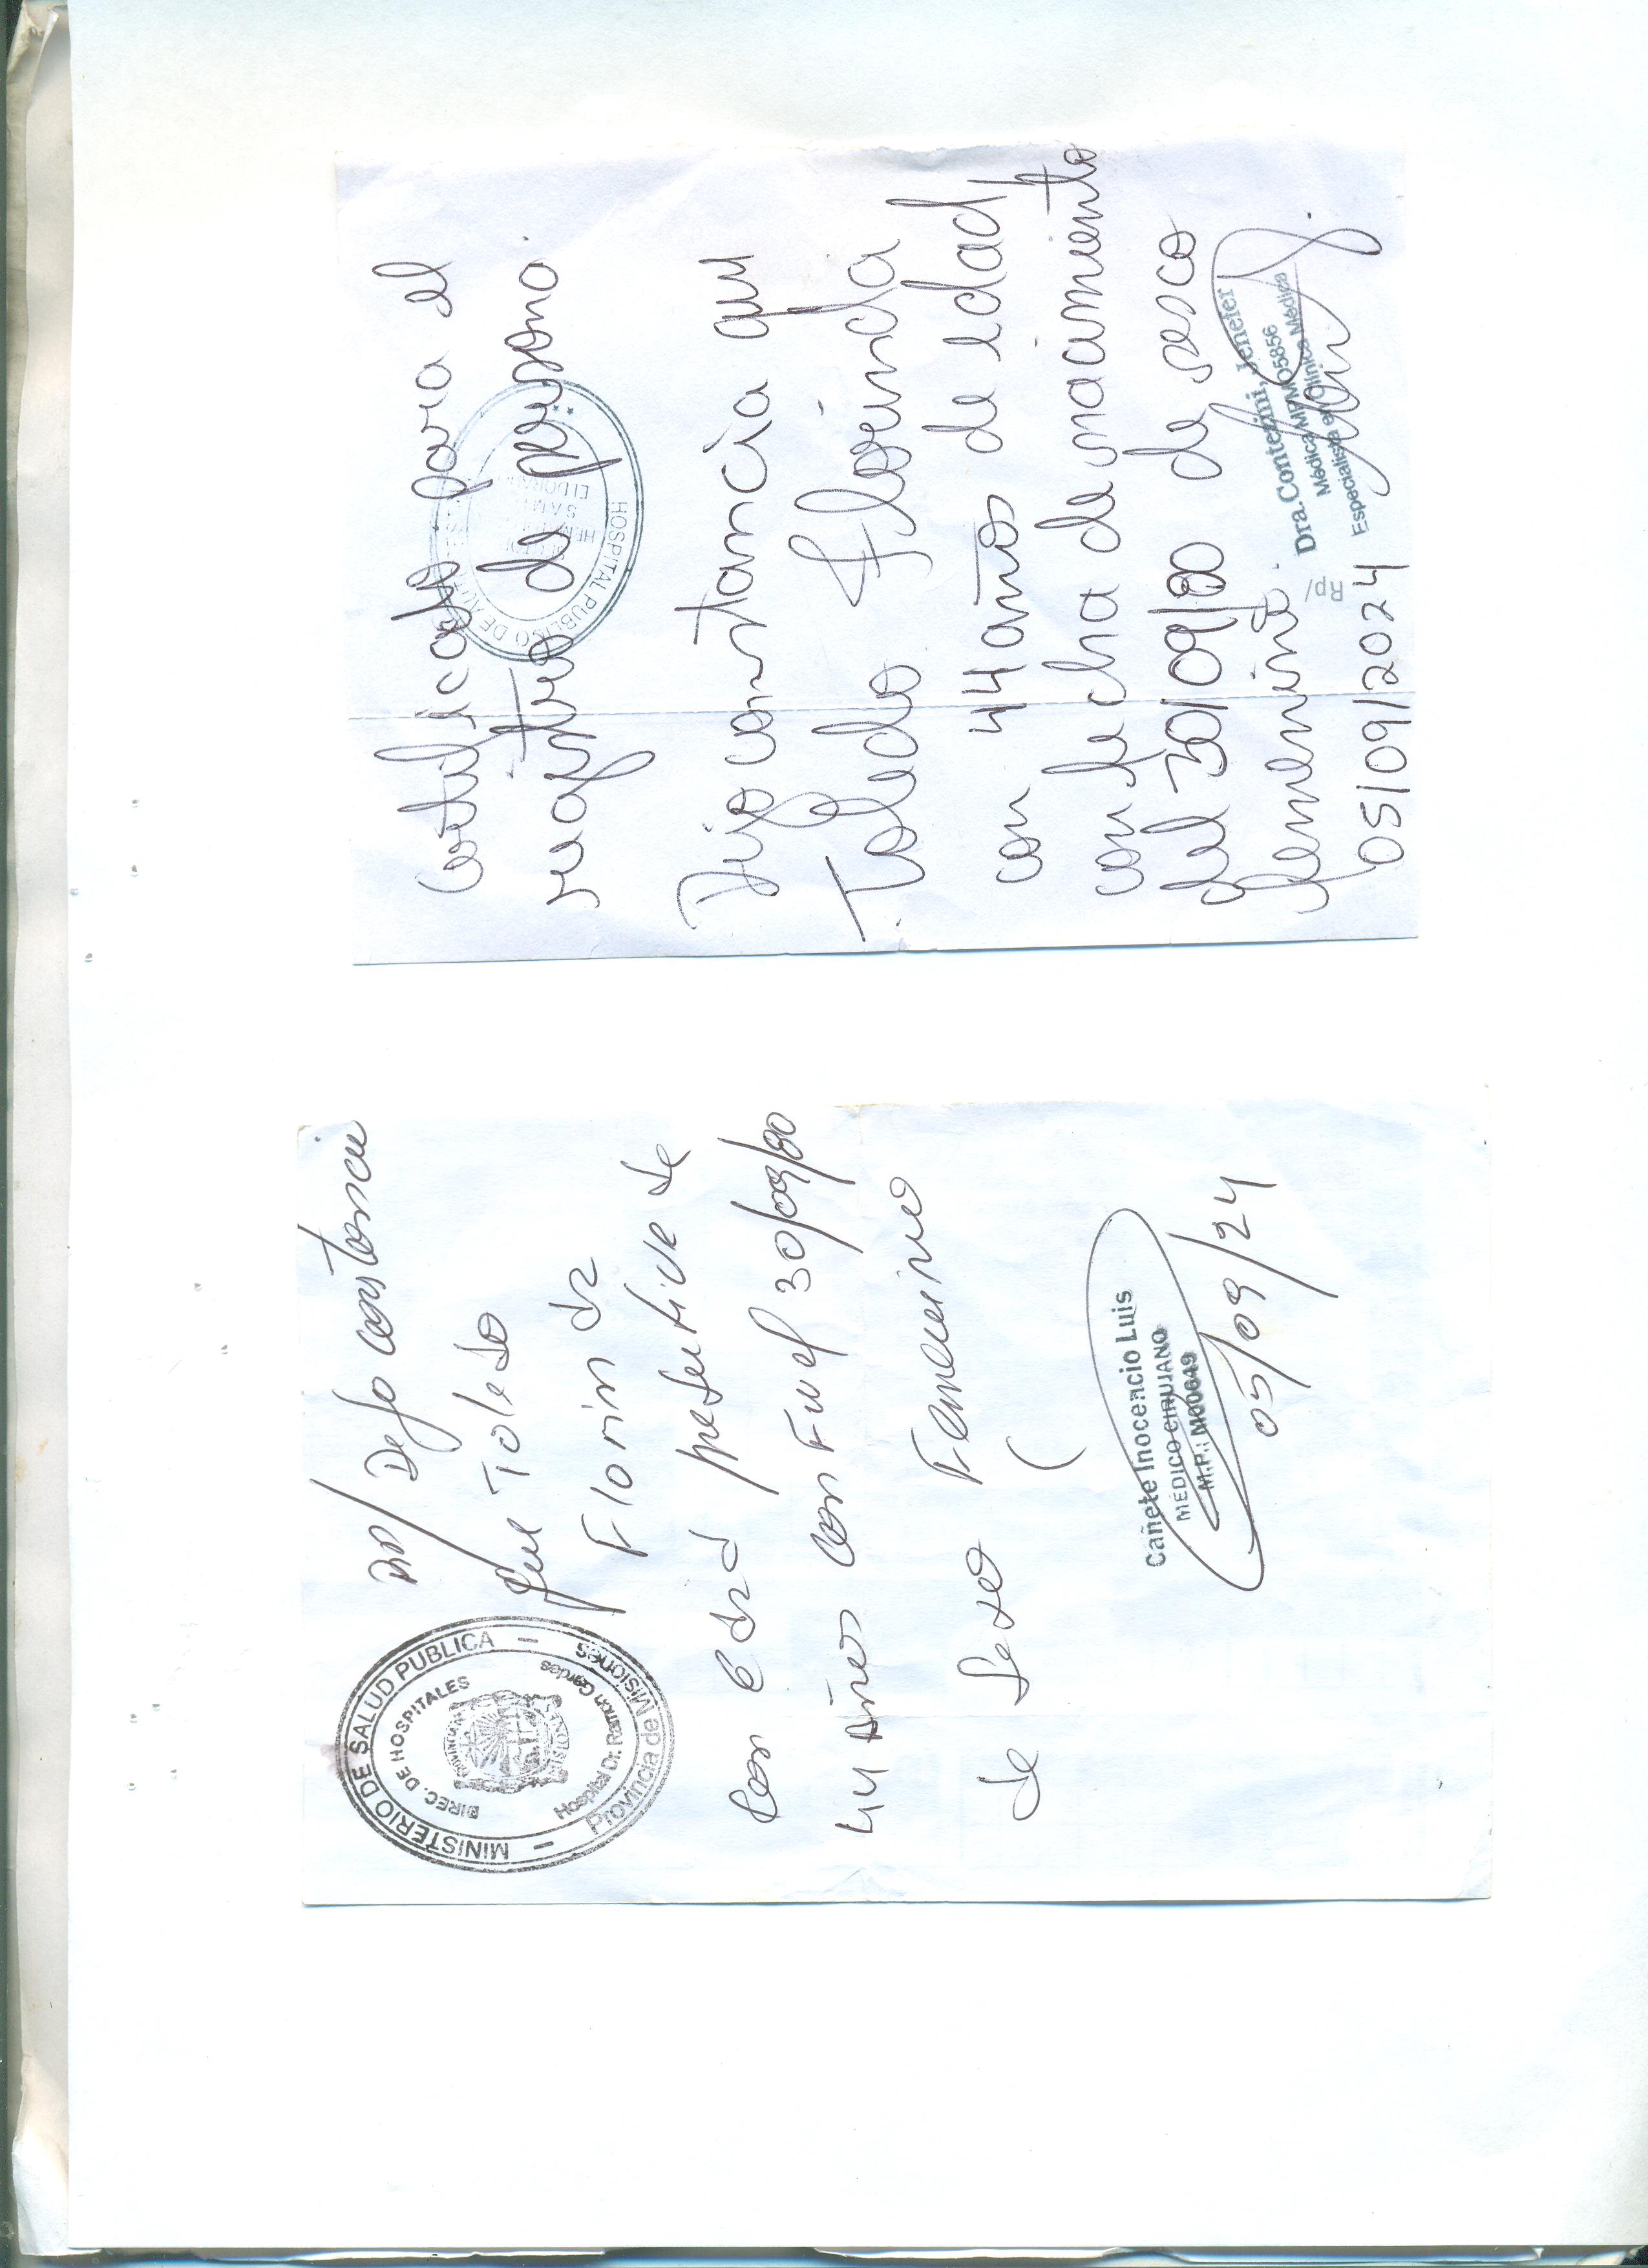 MINISTERIO DE SALUD PUBLICA
DIREC. DE HOSPITALES
Hospital Dr. Ramon Gardes
Provincia de Misiones
Dejo constancia
que Toledo
Florinda
con edad presuntiva de
44 Años con F.N el 30/09/80
de sexo Femenino
Cañete Inocencio Luis
MÉDICO CIRUJANO
M.P.: M00649
05/09/24
Certificado para el
registro de persona.
HOSPITAL PUBLICO DE AUTO
SAMI
ELDORADO
Dejo constancia que
Toledo Florinda
con 44 años de edad
con fecha de naciamiento
del 30/09/80 de sexo
femenino.
Rp/
Dra. Conterini, Jenefer
Médica MPM 05856
Especialista en Clínica Médica
05/09/2024